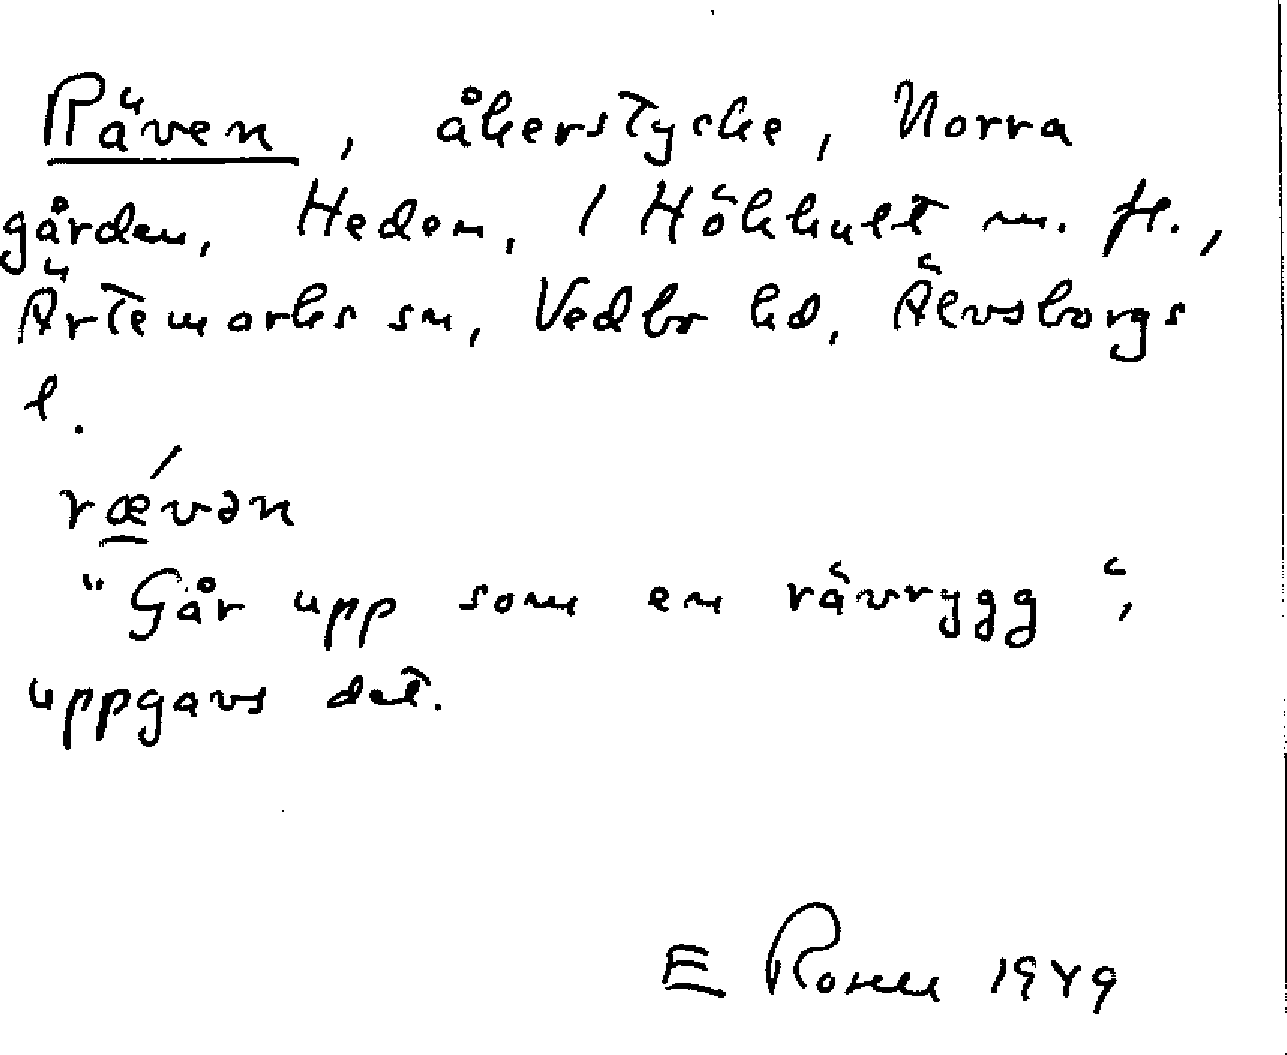 Räven, åkerstycke, Norra
gården, Heden, 1 Hökhult m. fl.,
Ärtemarks sn, Vedbo hd, Älvsborgs
l.
rǽvən
"Går upp som en rävrygg",
uppgavs det.
E Rosell 1949